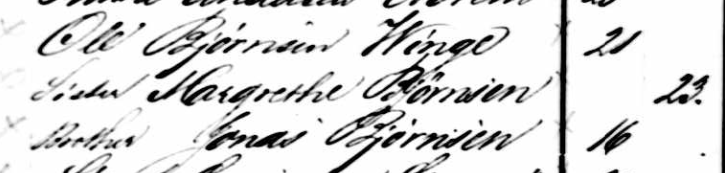 Ole Bjørnsen Winge 21
Sister Margrethe Bjørnsen 23.
Brother Jonas Bjørnsen 16